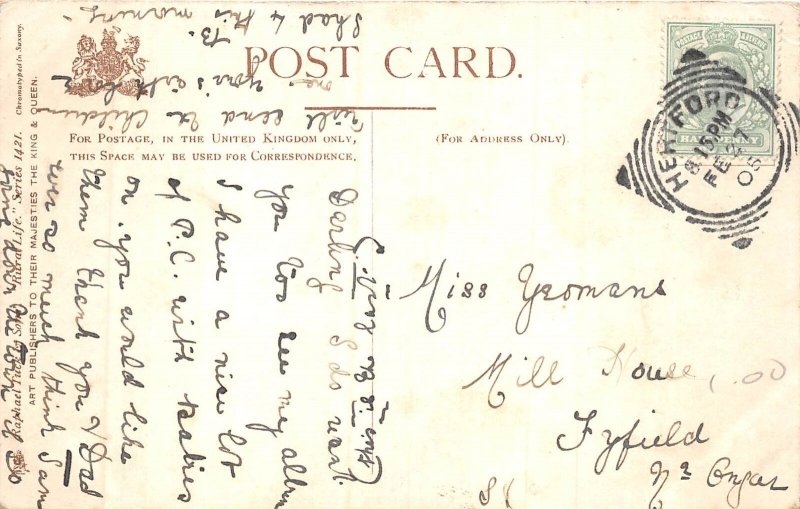 POST CARD.
FOR POSTAGE, IN THE UNITED KINGDOM ONLY,
THIS SPACE MAY BE USED FOR CORRESPONDENCE.
(FOR ADDRESS ONLY).
POSTAGE REVENUE
HALFPENNY
HERTFORD
8.15 PM
FE 27
05
Miss Yeomans
Mill House,
Fyfield
Nr Ongar
Darling I do want
you too see my album
I have a nice lot
of P.C. with
on. you would like
them thank you & Dad
ever so much think Sam
down the town
will send the children
yours
I had 4 this
morning
Raphael Tuck & Sons' "Rural Life." Series 1421.
Chromotyped in Saxony.
ART PUBLISHERS TO THEIR MAJESTIES THE KING & QUEEN.